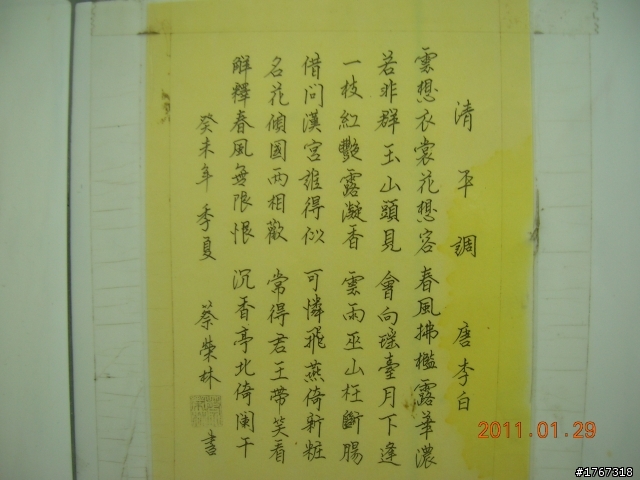 清平調 唐 李白
雲想衣裳花想容 春風拂檻露華濃
若非群玉山頭見 會向瑤臺月下逢
一枝紅艷露凝香 雲雨巫山枉斷腸
借問漢宮誰得似 可憐飛燕倚新粧
名花傾國兩相歡 常得君王帶笑看
解釋春風無限恨 沉香亭北倚闌干
癸未年季夏 蔡榮林 書
2011.01.29
#1767318